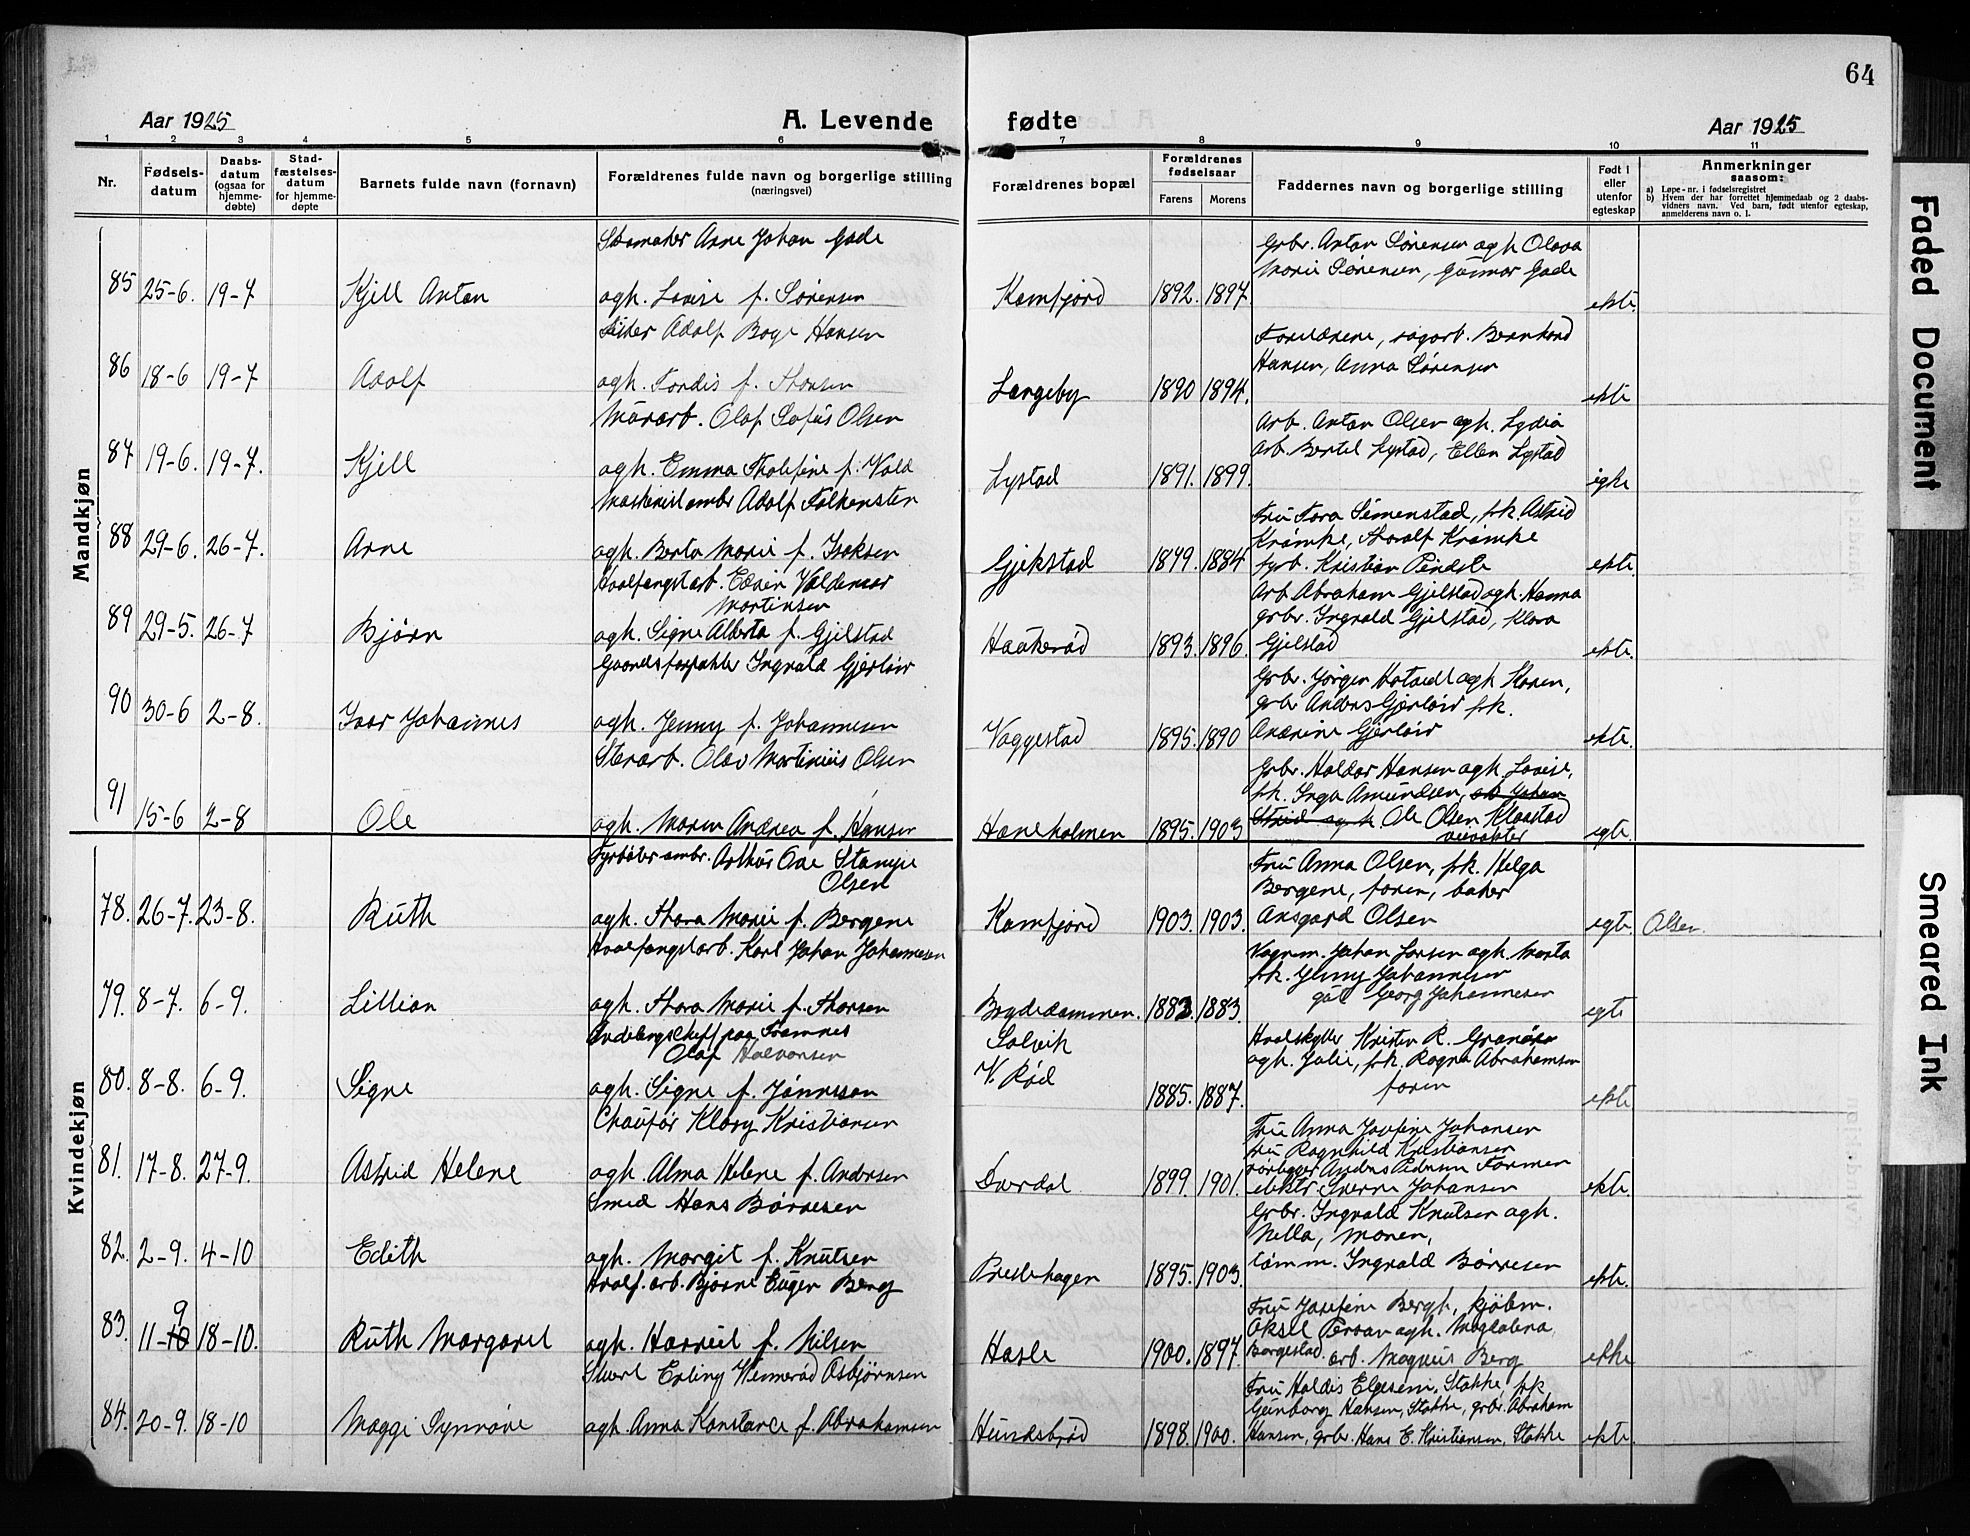 64
Aar 1925
A. Levende
fødte
Aar 1925
1 2 3 4 5 6 7 8 9 10 11
Nr.
Fødsels-
datum
Daabs-
datum
(ogsaa for
hjemme-
døbte)
Stad-
fæstelses-
datum
for hjemme-
døpte
Barnets fulde navn (fornavn)
Forældrenes fulde navn og borgerlige stilling
(næringsvei)
Forældrenes bopæl
Forældrenes
fødselsaar
Farens Morens
Faddernes navn og borgerlige stilling
Født i
eller
utenfor
egteskap
Anmerkninger
saasom:
a) Løpe-nr. i fødselsregistret
b) Hvem der har forrettet hjemmedaab og 2 daabs-
vidners navn. Ved barn, født utenfor egteskap,
anmelderens navn o. l.
Mandkjøn
85 25-6. 19-7 Kjell Anton
Arne Johan Gade
agh. Lovise f. Sørensen
Kamfjord 1892. 1897.
Grbr. Anton Sørensen agh Olava
Marie Sørensen, Gunnar Gade
ekte.
86 18-6 19-7 Adolf
Adolf Boge Hansen
agh. Tordis f. Thorsen
Langeby 1890 1894.
Forældrene, sagarb. Bernhard
Hansen, Anna Sørensen
ekte
87 19-6. 19-7. Kjell
Murarb. Olaf Sofus Olsen
agh. Emma Tholefine f. Wold
Lystad 1891. 1899.
Arb. Anton Olsen agh. Lydia
Arb. Bertel Lystad, Ellen Lystad
egte
88 29-6. 26-7. Arne
Adolf Falkensten
agh. Berta Marie f. Isaksen
Gjekstad 1879. 1884
Fru Tora Simenstad, frk. Astrid
Krømke, Thoralf Krømke
fyrb. Kristian Pindsle
ekte.
89 29-5. 26-7 Bjørn
Hvalfangstarb. Edvin Valdemar
Martinsen
agh. Signe Alberta f. Gjelstad
Haakerød 1893. 1896.
Arb. Abraham Gjelstad agh. Hanna
grbr. Ingvald Gjelstad, Klara
Gjelstad
ekte.
90 30-6 2-8. Ivar Johannes
Gaardsforpakter Ingvald Gjerløw
agh. Jenny f. Johannesen
Vaggestad 1895. 1890
Grbr. Jørgen agh Karen,
grbr Anders Gjerløw frk.
Andrine Gjerløw
ekte.
91 15-6 2-8 Ole
Stenarb. Olav Martinius Olsen
agh. Maren Andrea f. Hansen
Haneholmen 1895. 1903
Grbr. Haldor Hansen agh Lovise,
frk. Inga Amundsen,
Ole Olsen Klaastad
egte.
Kvindekjøn
78. 26-7. 23-8. Ruth
Fyrbøter ombr. Arthur Ove Stampe
Olsen
agh. Thora Marie f. Bergene
Kamfjord 1903. 1903.
Fru Anna Olsen, frk. Helga
Bergene, faren, baker
Ansgard Olsen
egte. Olsen.
79. 8-7. 6-9. Lillian
Hvalfangstarb. Karl Johan Johannesen
agh. Thora Marie f. Thorsen
Bogdedammen. 1883 1883.
Vognm. Johan Larsen agh. Marta
frk. Jenny Johannesen
Georg Johannesen
egte
80. 8-8. 6-9. Signe
paa Framnes
Olaf Halvorsen
agh. Signe f. Jönnsson
Solvik
V. Rød
1885. 1887.
Hvalskytter Kristen R. Granøe
agh. Julie, frk. Ragna Abrahamsen
faren
ekte
81. 17-8. 27-9. Astrid Helene
Chaufør Klary Kristiansen
agh. Alma Helene f. Andersen
Dverdal 1899. 1901.
Fru Anna Josefine Johansen
fru Ragnhild Kristiansen
rørlegger Anders Pedersen Formen
elektr. Sverre Johansen
ekte.
82. 2-9. 4-10 Edith
Smed Hans Børresen
agh. Margit f. Knutsen
Preslehagen 1895. 1903.
Grbr. Ingvald Knutsen agh.
Nella, Moren,
tømm. Ingvald Børresen
ekte.
83. 9
11-10 18-10. Ruth Margaret
Hvalf. arb. Bjarne Eugen Berg
agh. Harriet f. Nilsen
Hasle 1900. 1897.
Fru Josefine Bergh, kjøbm.
Aksel Persen agh. Magdalena,
Borgestad. arb. Magnus Berg
ekte
84. 20-9. 18-10 Maggi Synnøve
Stuert Erling Wennerød Asbjørnsen
agh. Anna Konstance f. Abrahamsen
Hundsbrød 1898. 1900.
Fru Haldis Elgesem, Stokke, frk
Geinborg Hansen, Stokke, grbr. Abraham
Hansen, grbr. Hans E. Kristiansen, Stokke
ekte.
Faded Document
Smeared Ink